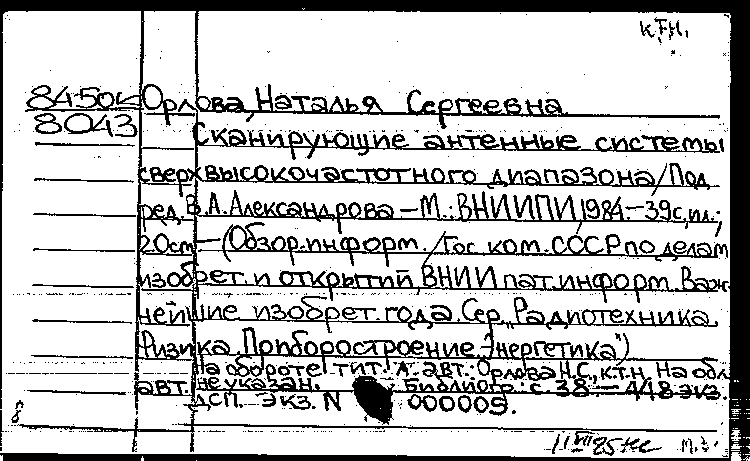 К.Т.Н.
8450к Орлова, Наталья Сергеевна
8043
Сканирующие антенные системы
сверхвысокочастотного диапазона / Под
ред. В.А.Александрова – М.: ВНИИПИ, 1984. – 39с, ил.;
20см – (Обзор. информ. / Гос. ком. СССР по делам
изобрет. и открытий, ВНИИ пат. информ. Важ-
нейшие изобрет. года. Сер. „Радиотехника.
Физика. Приборостроение. Энергетика")
На обороте тит. л. авт.: Орлова Н.С., к.т.н. На обл.
авт. не указан. Библиогр.: с. 38 – 448 экз.
ДСП. Экз. N 000009.